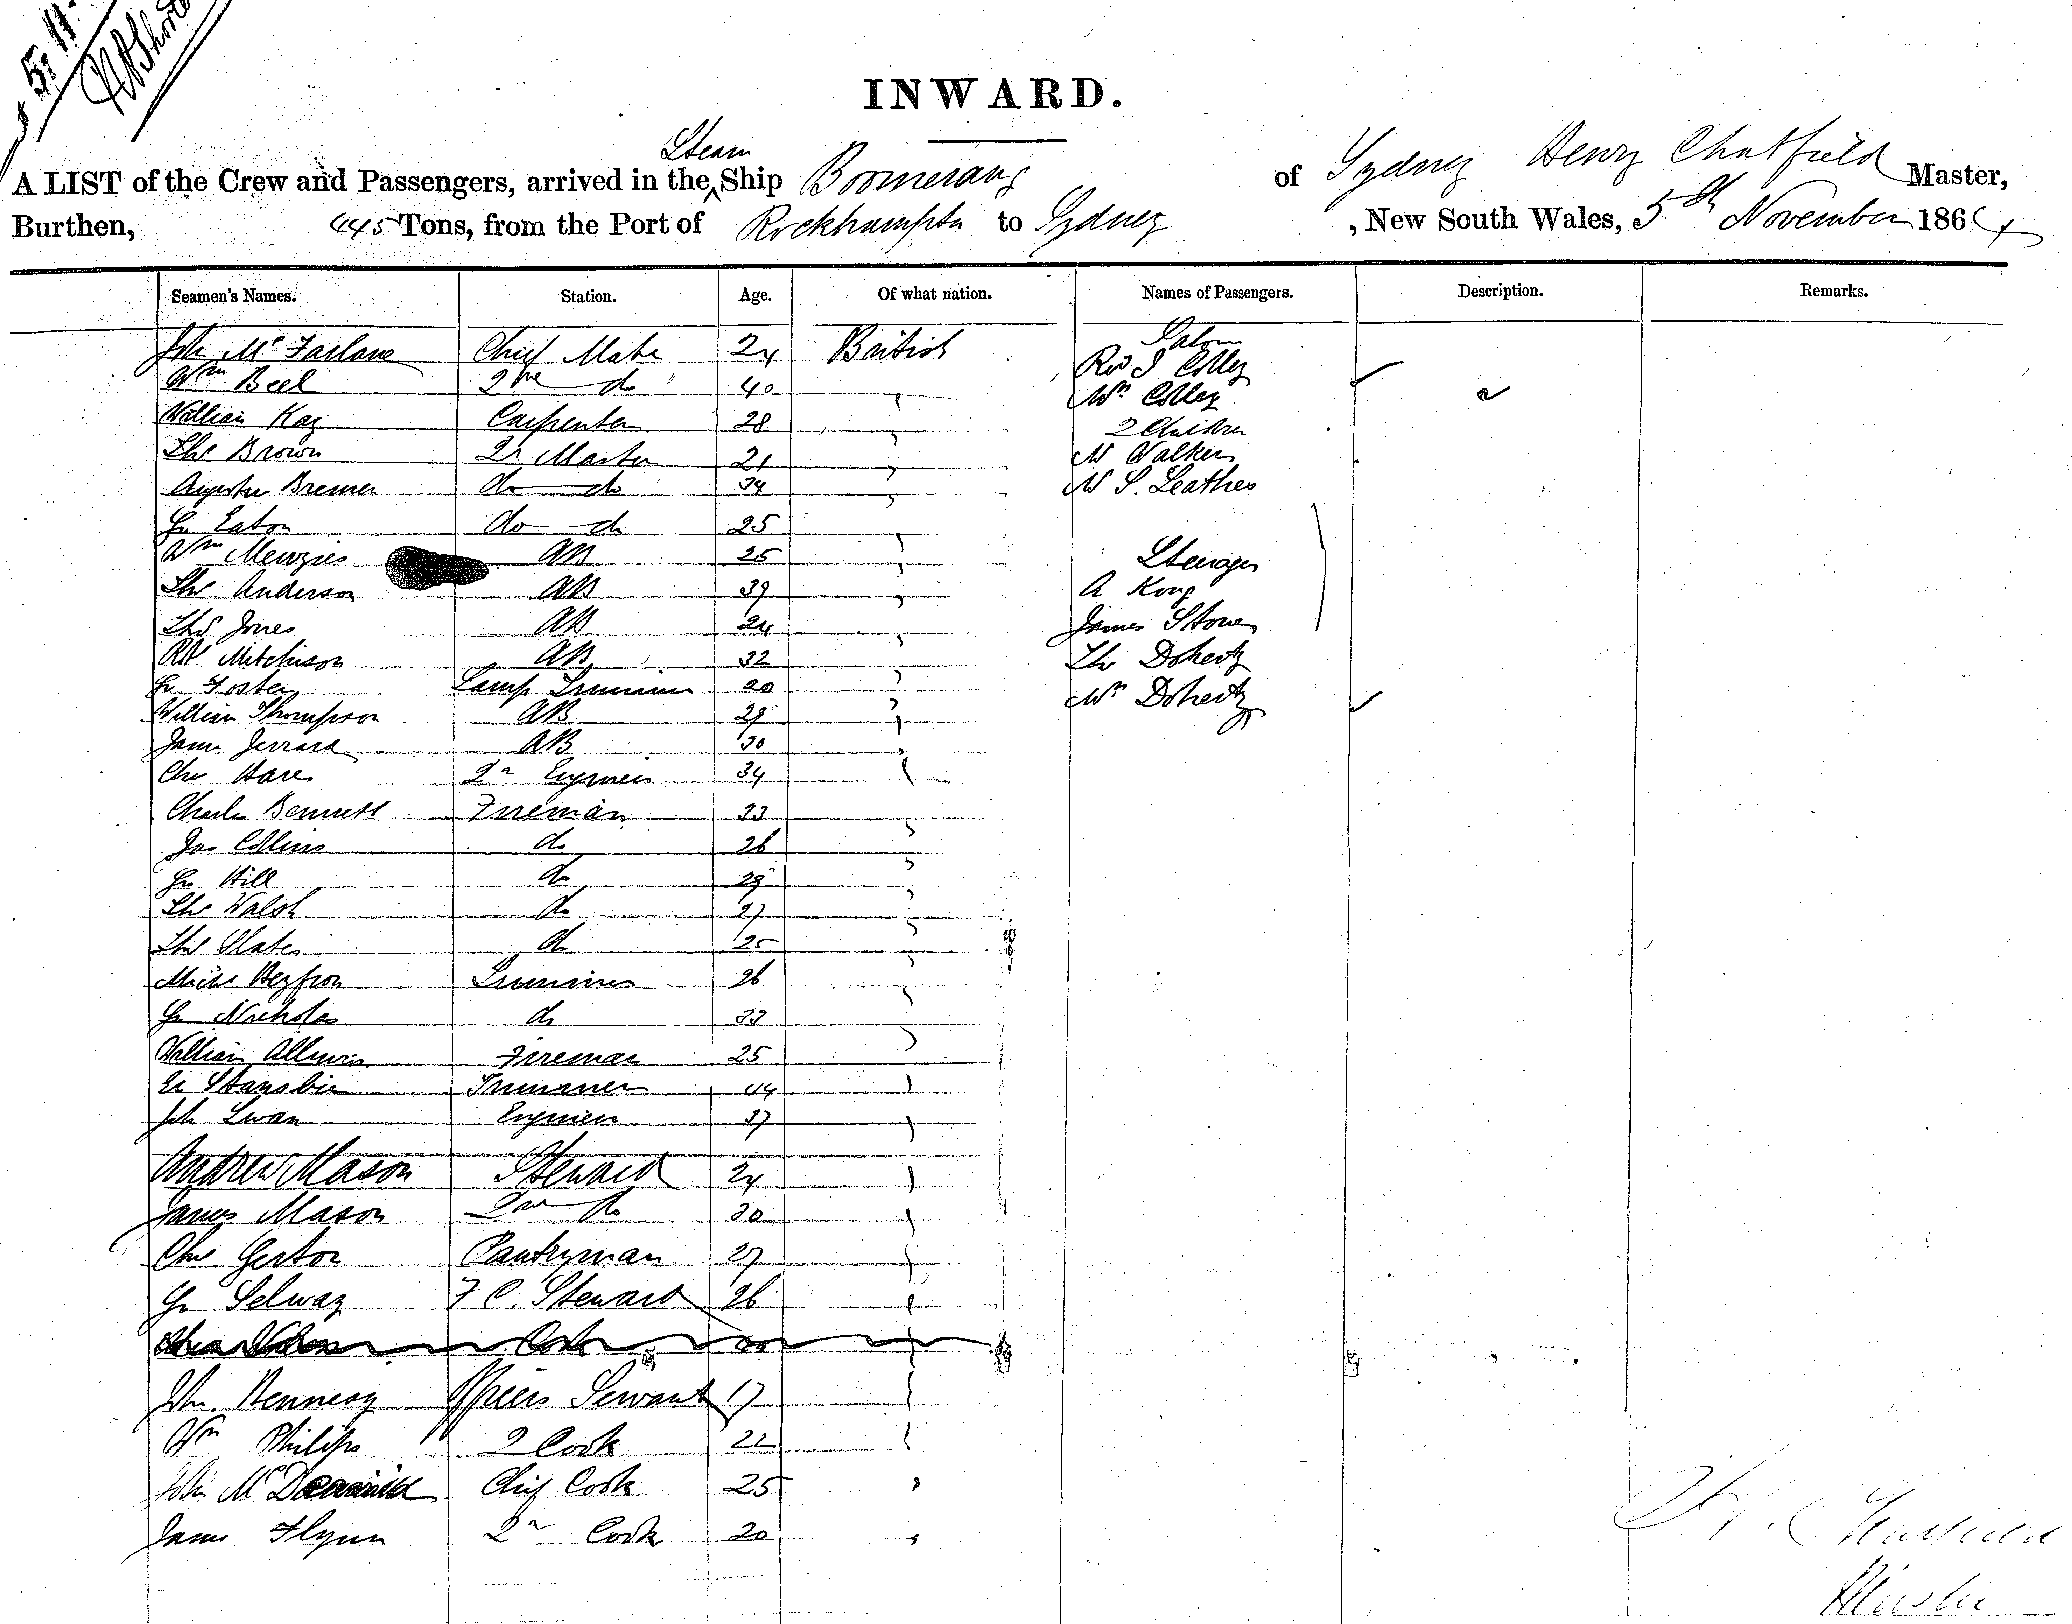 5. 11.
INWARD.
Steam
A LIST of the Crew and Passengers, arrived in the ^ Ship Boomerang of Sydney Henry Chatfield Master,
Burthen, 445 Tons, from the Port of Rockhampton to Sydney , New South Wales, 5th November 1864
Seamen's Names. Station. Age. Of what nation. Names of Passengers. Description. Remarks.
Saloon
John McFarlane Chief Mate 24 British Rev J Colley
Wm Beel 2nd do 40 " Mrs Colley
William Kay Carpenter 28 " 2 Children
Thos Brown Qr Master 21 " Mr Walker
Augustus Bremer do do 34 " Mr S. Leathes
Geo Eaton do do 25 "
Wm Menzies AB 25 " Steerage
Thos Anderson AB 39 " A Kong
Thos Jones AB 24 " James Stowe
Rbt Mitchison AB 32 " Thos Doherty
Geo Foster Lamp Trimmer 20 " Mrs Doherty
William Thompson AB 29 "
James Jerrard AB 30 "
Chs Hare 2n Engineer 34 "
Charles Bennett Fireman 33 "
Jas Collins do 26 "
Geo Hill do 29 "
Thos Walsh do 27 "
Thos Slater do 25 "
Trimmer 26 "
Geo Nicholas do 33 "
William Fireman 25 "
Trimmer 44 "
John Swan Engineer 37 "
Andrew Mason Steward 24 "
James Mason 2nd do 30 "
Chs Gerton Pantryman 27 "
Geo Selway F C. Steward 26 "
Cook
Jno. Hennesy Officers Servant 17 "
Wm Philips 2 Cook 22 "
John Mc Chief Cook 25 "
James Flynn 2n Cook 20 "
H. Chatfield
Master